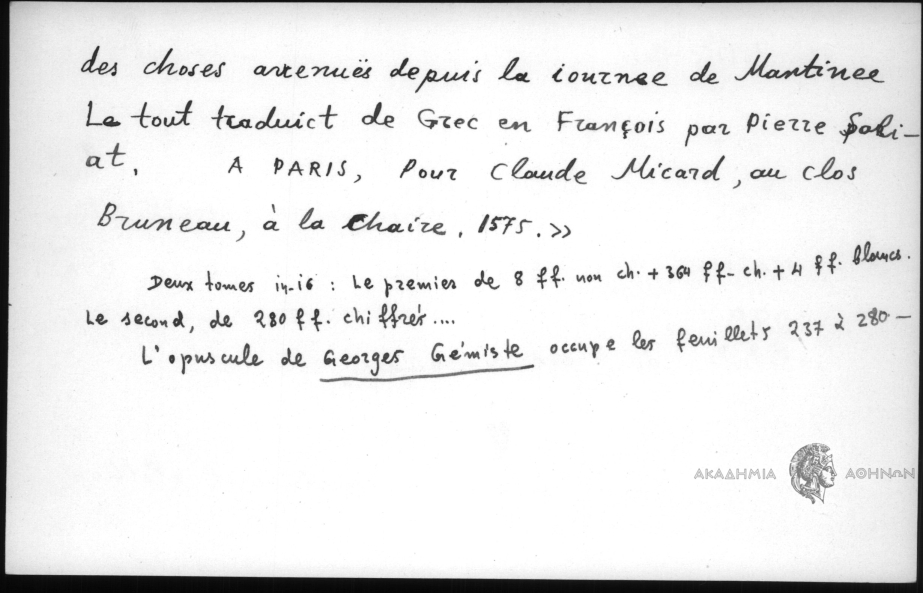 des choses arrenuës depuis la iournee de Mantinee
Le tout traduict de Grec en François par Pierre Sali-
at. A PARIS, Pour Claude Micard, au clos
Bruneau, à la Chaire. 1575. »
Deux tomes in-16 : Le premier de 8 ff. non ch. + 364 ff- ch. + 4 ff. blancs.
Le second, de 280 ff. chiffrés....
L'opuscule de Georges Gémiste occupe les feuillets 237 à 280 —
ΑΚΑΔΗΜΙΑ ΑΘΗΝΩΝ